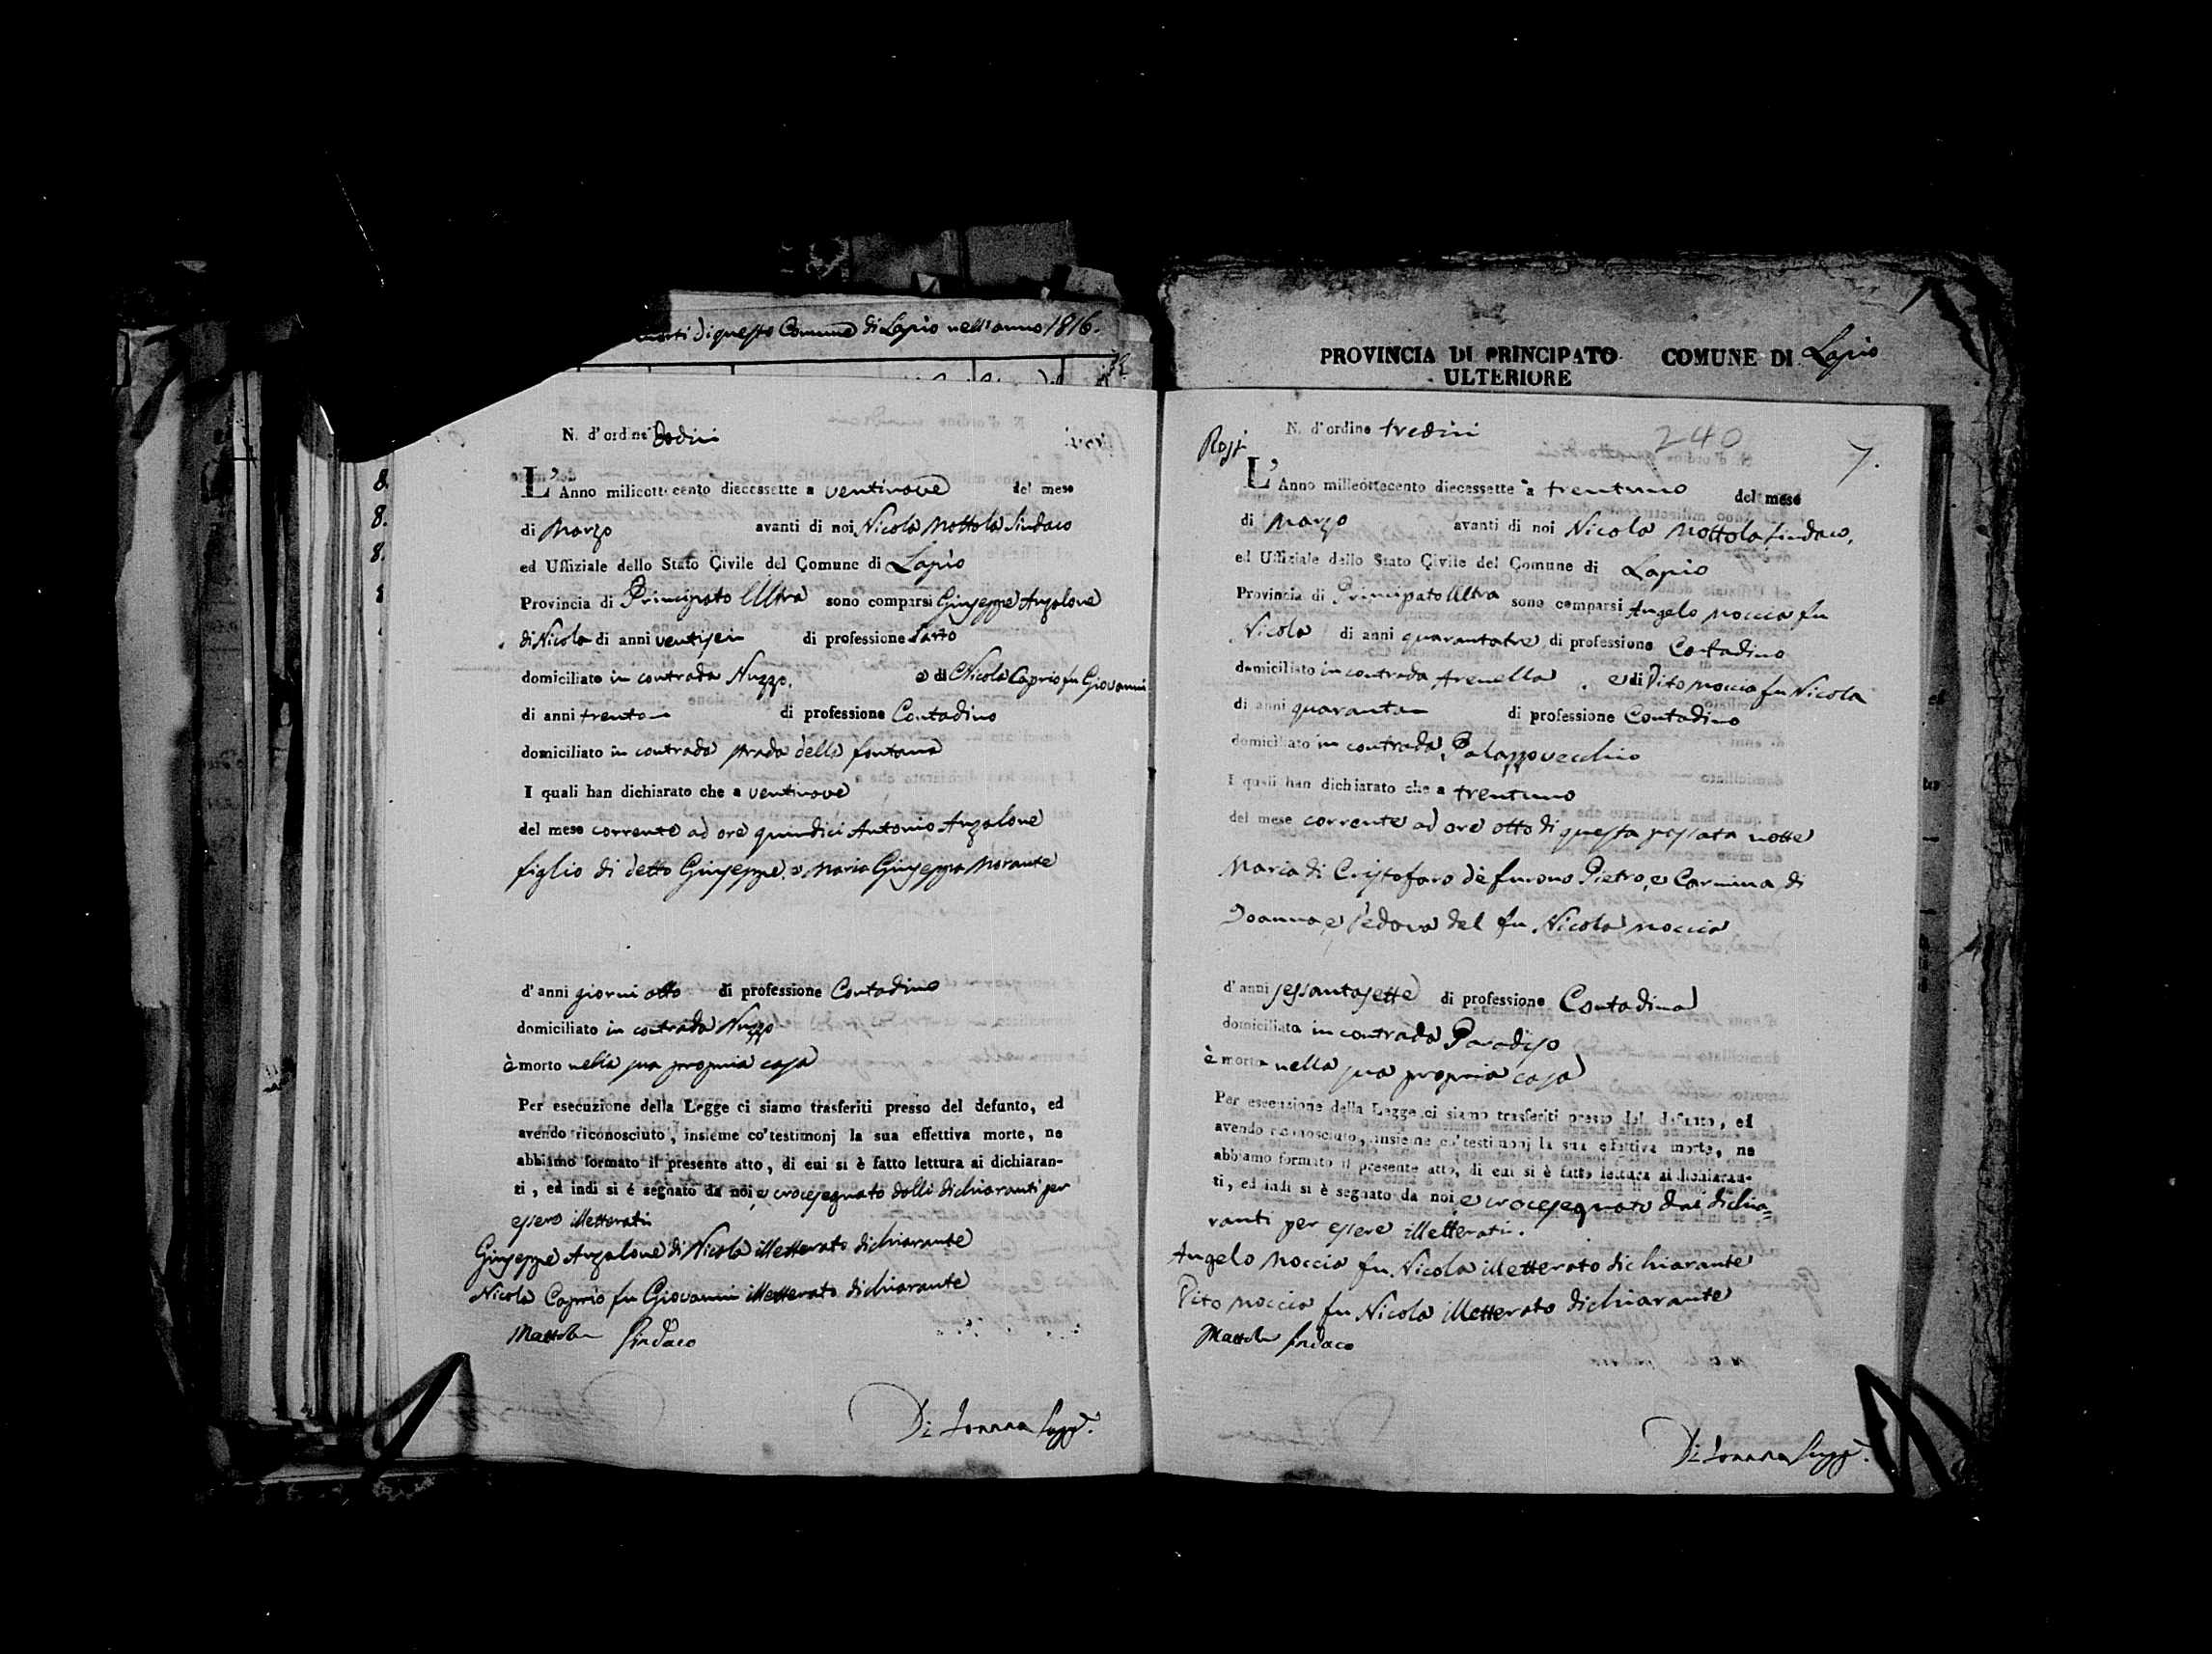 morti di questo Comune di Lapio nell'anno 1816.
N. d'ordine Dodici
L'Anno milleottocento diecessette a ventinove del mese
di Marzo avanti di noi Nicola Mottola Sindaco
ed Uffiziale dello Stato Civile del Comune di Lapio
Provincia di Principato Ultra sono comparsi Giuseppe Anzalone
di Nicola di anni ventisei di professione Sarto
domiciliato in contrada Nuzzo, e di Nicola Caprio fu Giovanni
di anni trenta di professione Contadino
domiciliato in contrada strada della fontana
I quali han dichiarato che a ventinove
del mese corrente ad ore quindici Antonio Anzalone
figlio di detto Giuseppe, e Maria Giuseppa Morante
d'anni giorni otto di professione Contadino
domiciliato in contrada Nuzzo
è morto nella sua propria casa
Per esecuzione della Legge ci siamo trasferiti presso del defunto, ed
avendo riconosciuto, insieme co'testimonj la sua effettiva morte, ne
abbiamo formato il presente atto, di cui si è fatto lettura ai dichiaran-
ti, ed indi si è segnato da noi, e crocesegnato dalli dichiaranti per
essere illetterati
Giuseppe Anzalone di Nicola illetterato dichiarante
Nicola Caprio fu Giovanni illetterato dichiarante
Mottola Sindaco
Di Ioanna
8.
8.
8.
PROVINCIA DI PRINCIPATO COMUNE DI Lapio
ULTERIORE
N. d'ordine tredici 240 7.
L'Anno milleottocento diecessette a trentuno del mese
di Marzo avanti di noi Nicola Mottola Sindaco,
ed Uffiziale dello Stato Civile del Comune di Lapio
Provincia di Principato Ultra sono comparsi Angelo Moccia fu
Nicola di anni quarantatre di professione Contadino
domiciliato in contrada Trenella, e di Vito Moccia fu Nicola
di anni quaranta di professione Contadino
domiciliato in contrada Palazzo vecchio
I quali han dichiarato che a trentuno
del mese corrente ad ore otto di questa passata notte
Maria di Cristofaro de furono Pietro, e Carmina di
Ioanna, e Vedova del fu Nicola Moccia
d'anni sessantasette di professione Contadina
domiciliata in contrada Paradiso
è morta nella sua propria casa
Per esecuzione della Legge ci siamo trasferiti presso del defunto, ed
avendo riconosciuto, insieme co'testimonj la sua effettiva morte, ne
abbiamo formato il presente atto, di cui si è fatto lettura ai dichiaran-
ti, ed indi si è segnato da noi, e crocesegnato dai dichia=
ranti per essere illetterati.
Angelo Moccia fu Nicola illetterato dichiarante
Vito Moccia fu Nicola illetterato dichiarante
Mottola Sindaco
Di Ioanna